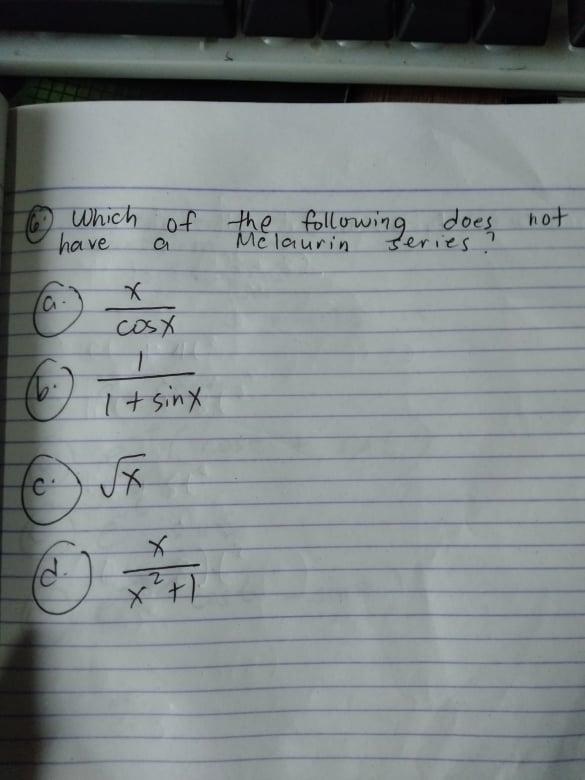 6. Which of the following does not
have a Mclaurin series?
a. x/cosx
b. 1/1+sinx
c. √x
d. x/x²+1